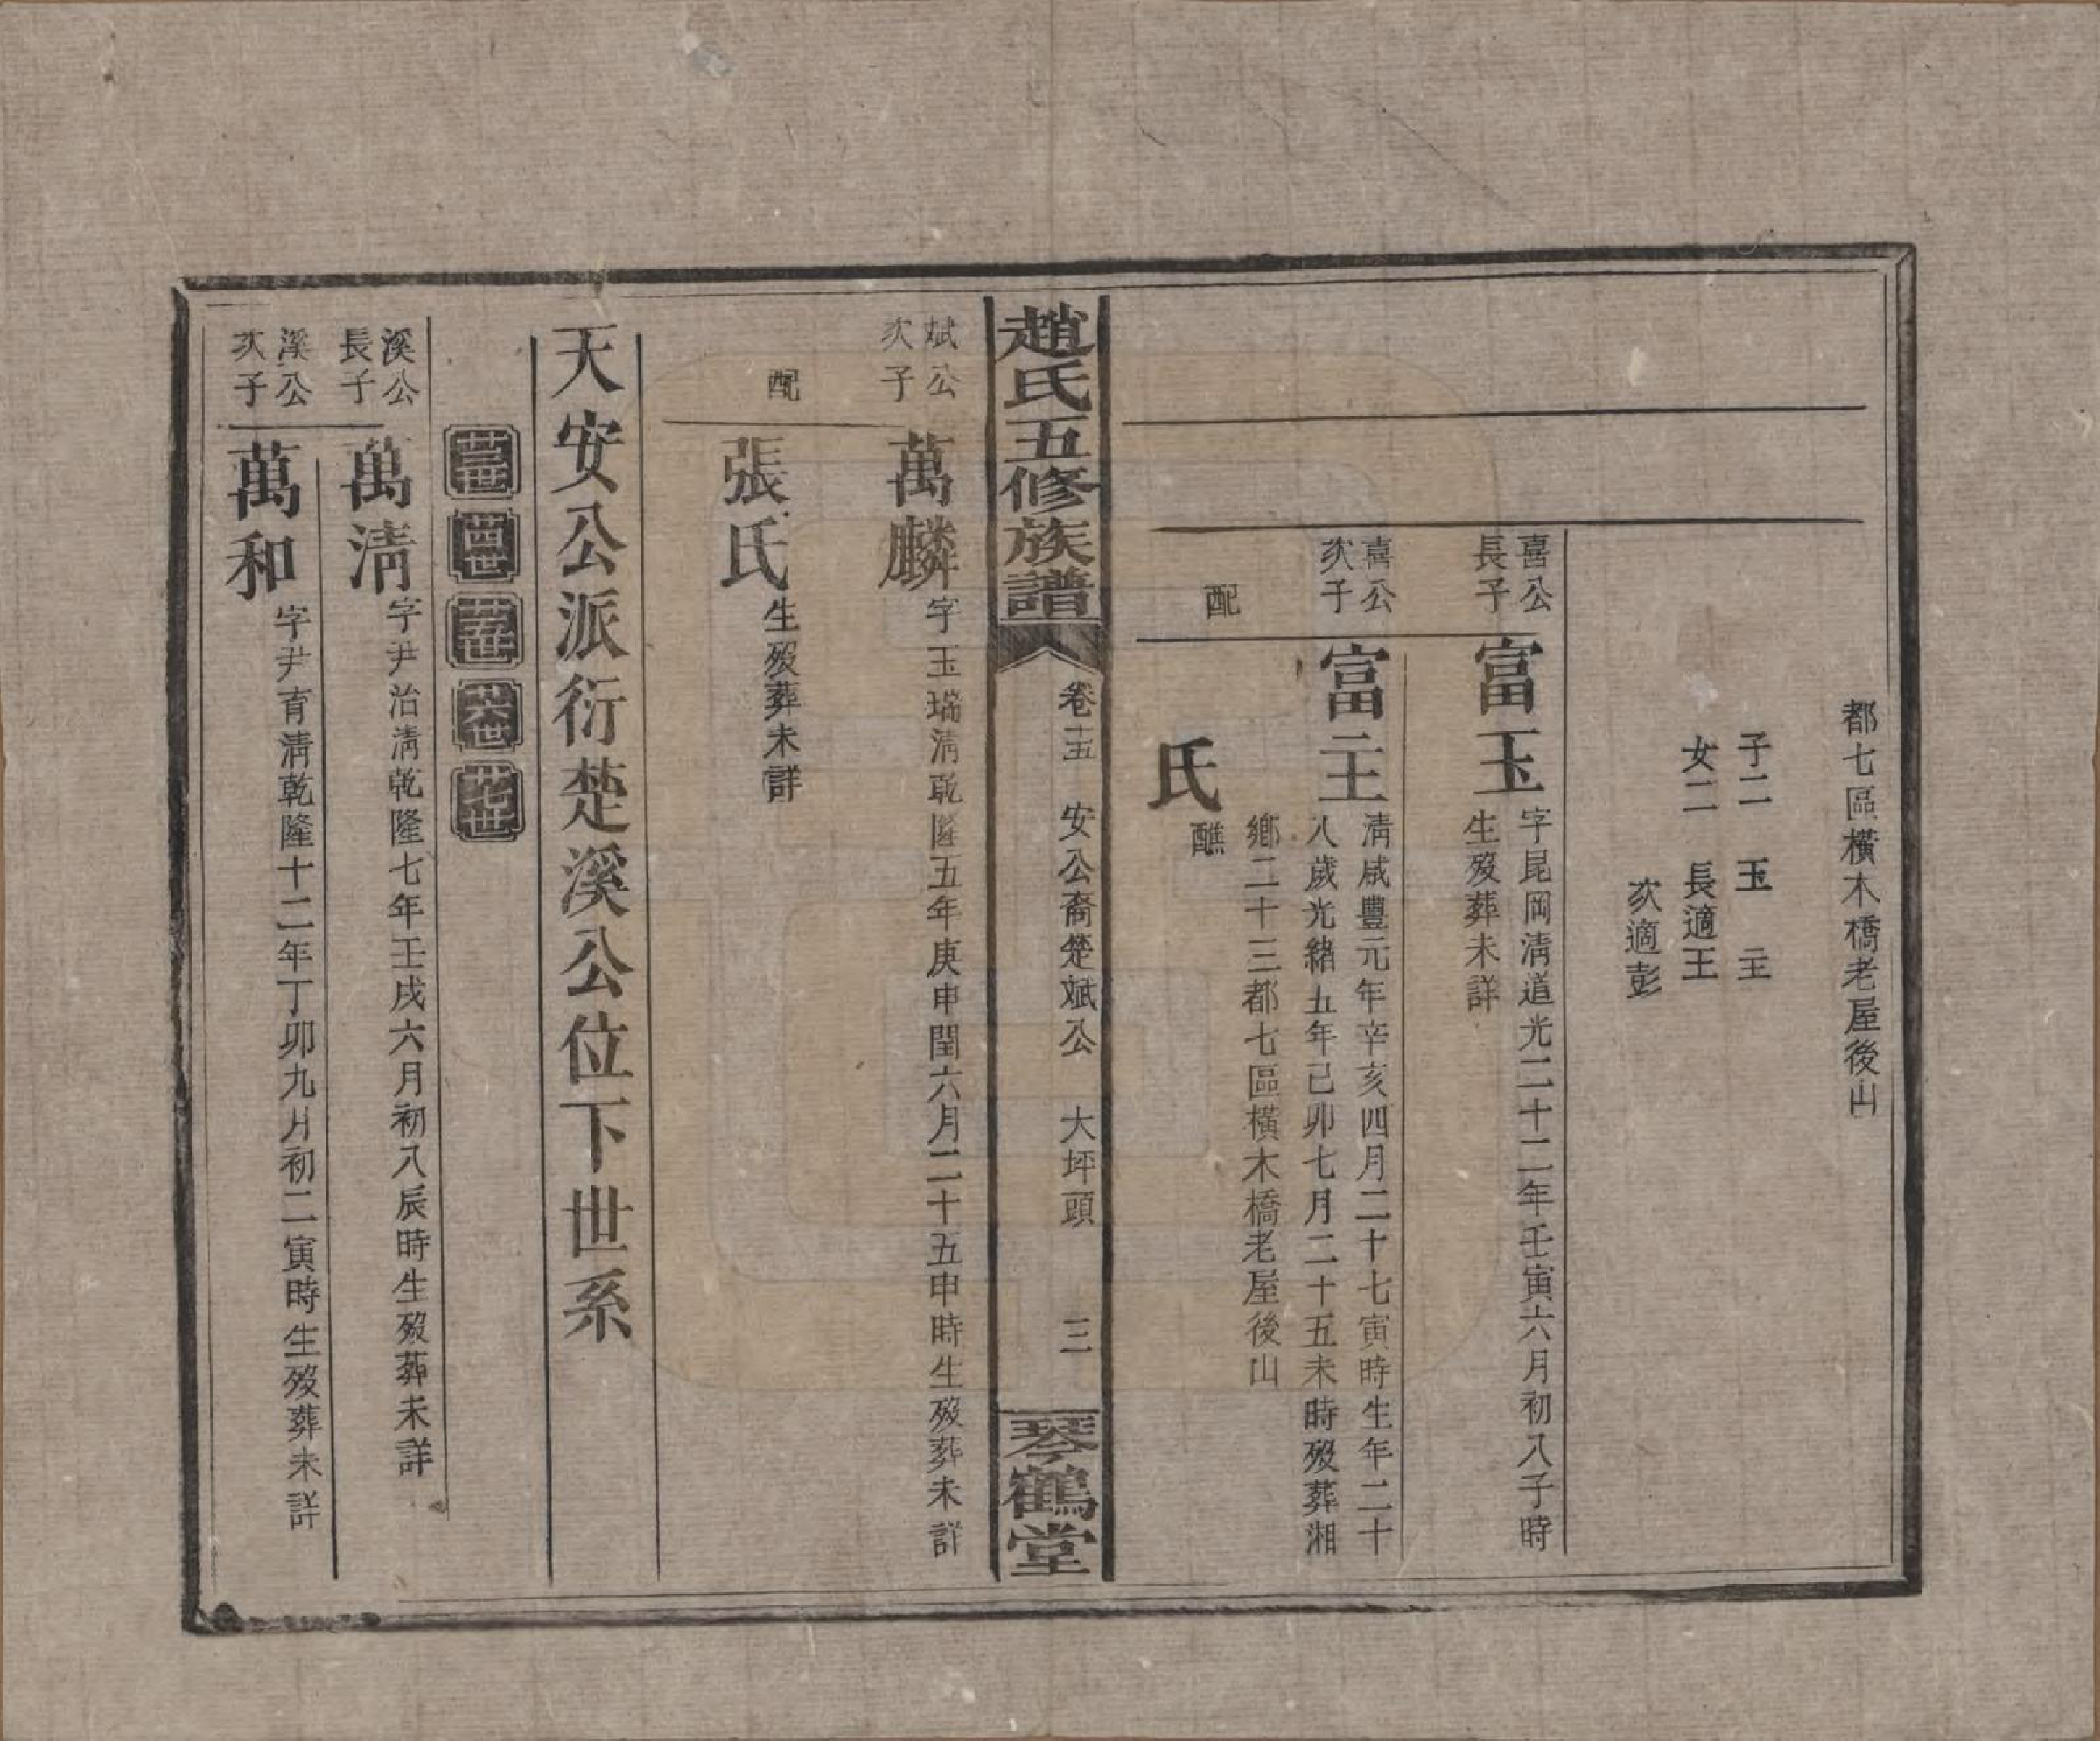 都七區橫木橋老屋後山
子二 玉 𤣩
女二 長適王
次適彭
喜公
長子
富玉
字昆岡清道光二十二年壬寅六月初八子時
生歿葬未詳
喜公
次子
富𤣩
清咸豐元年辛亥四月二十七寅時生年二十
八歲光緒五年己卯七月二十五未時歿葬湘
鄉二十三都七區橫木橋老屋後山
配
氏
醮
趙氏五修族譜
卷十五 安公裔楚斌公 大坪頭 三
琴鶴堂
斌公
次子
萬麟
字玉瑞清乾隆五年庚申閏六月二十五申時生歿葬未詳
配
張氏
生歿葬未詳
天安公派衍楚溪公位下世系
廿三世 廿四世 廿五世 廿六世 廿七世
溪公
長子
萬清
字尹治清乾隆七年壬戌六月初八辰時生歿葬未詳
溪公
次子
萬和
字尹育清乾隆十二年丁卯九月初二寅時生歿葬未詳